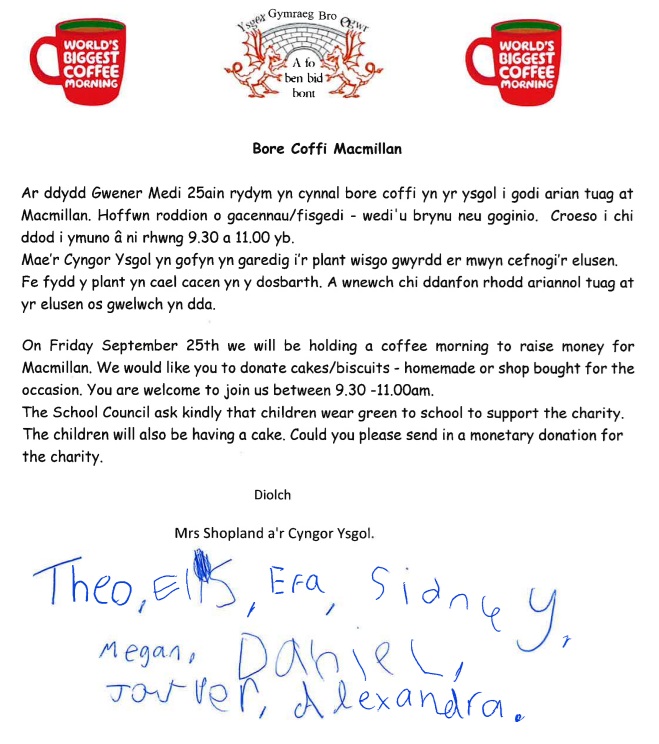 WORLD'S
BIGGEST
COFFEE
MORNING
Ysgol Gymraeg Bro Ogwr
A fo
ben bid
bont
WORLD'S
BIGGEST
COFFEE
MORNING
Bore Coffi Macmillan
Ar ddydd Gwener Medi 25ain rydym yn cynnal bore coffi yn yr ysgol i godi arian tuag at
Macmillan. Hoffwn roddion o gacennau/fisgedi - wedi'u brynu neu goginio. Croeso i chi
ddod i ymuno â ni rhwng 9.30 a 11.00 yb.
Mae'r Cyngor Ysgol yn gofyn yn garedig i'r plant wisgo gwyrdd er mwyn cefnogi'r elusen.
Fe fydd y plant yn cael cacen yn y dosbarth. A wnewch chi ddanfon rhodd ariannol tuag at
yr elusen os gwelwch yn dda.
On Friday September 25th we will be holding a coffee morning to raise money for
Macmillan. We would like you to donate cakes/biscuits - homemade or shop bought for the
occasion. You are welcome to join us between 9.30 -11.00am.
The School Council ask kindly that children wear green to school to support the charity.
The children will also be having a cake. Could you please send in a monetary donation for
the charity.
Diolch
Mrs Shopland a'r Cyngor Ysgol.
Theo, Efa, Sidney,
Megan, Daniel,
Alexandra.